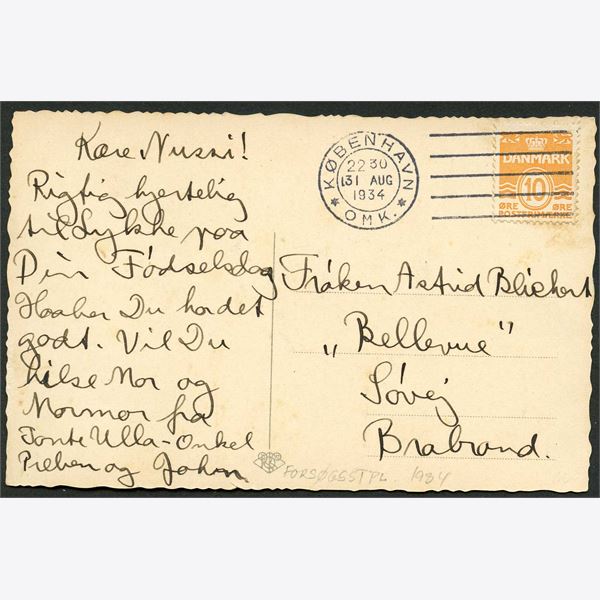 Kære Nussi!
Rigtig hjertelig
tillykke paa
Din Fødselsdag
Haaber Du har det
godt. Vil Du
hilse Mor og
Mormor fra
Tante Ulla-Onkel
Preben og John
KØBENHAVN
22 30
31 AUG
1934
* OMK. *
DANMARK
10
ØRE ØRE
POSTFRIMÆRKE
Frøken Astrid Blichert
„Bellevue"
Søvej
Brabrand.
FORSØGSSTPL. 1934